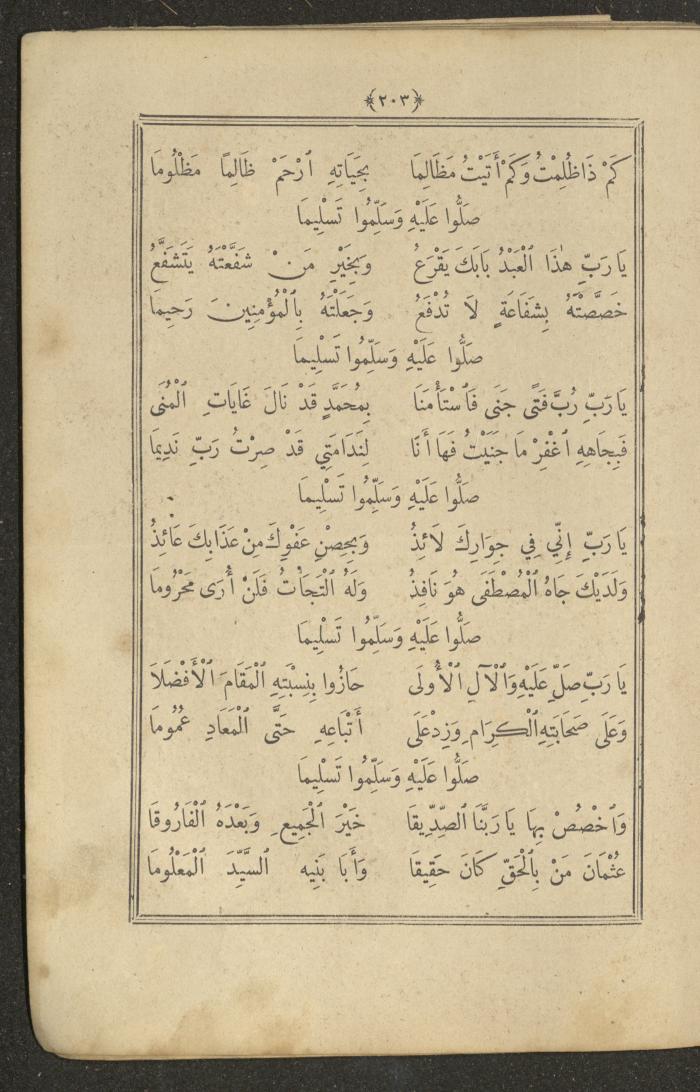 ﴿٢٠٣﴾
كَمْ ذَا ظُلِمْتُ وَكَمْ أَتَيْتُ مَظَالِمَا بِحَيَاتِهِ ٱرْحَمْ ظَالِمًا مَظْلُومَا
صَلُّوا عَلَيْهِ وَسَلِّمُوا تَسْلِيمَا
يَا رَبِّ هٰذَا ٱلْعَبْدُ بَابَكَ يَقْرَعُ وَبِخَيْرِ مَنْ شَفَّعْتَهُ يَتَشَفَّعُ
خَصَّصْتَهُ بِشَفَاعَةٍ لَا تُدْفَعُ وَجَعَلْتَهُ بِٱلْمُؤْمِنِينَ رَحِيمَا
صَلُّوا عَلَيْهِ وَسَلِّمُوا تَسْلِيمَا
يَا رَبِّ رُبَّ فَتًى جَنَى فَٱسْتَأْمَنَا بِمُحَمَّدٍ قَدْ نَالَ غَايَاتِ ٱلْمُنَى
فَبِجَاهِهِ ٱغْفِرْ مَا جَنَيْتُ فَهَا أَنَا لِنَدَامَتِي قَدْ صِرْتُ رَبِّ نَدِيمَا
صَلُّوا عَلَيْهِ وَسَلِّمُوا تَسْلِيمَا
يَا رَبِّ إِنِّي فِي جِوَارِكَ لَائِذُ وَبِحِصْنِ عَفْوِكَ مِنْ عَذَابِكَ عَائِذُ
وَلَدَيْكَ جَاهُ ٱلْمُصْطَفَى هُوَ نَافِذُ وَلَهُ ٱلْتَجَأْتُ فَلَنْ أُرَى مَحْرُومَا
صَلُّوا عَلَيْهِ وَسَلِّمُوا تَسْلِيمَا
يَا رَبِّ صَلِّ عَلَيْهِ وَٱلْآلِ ٱلْأُولَى حَازُوا بِنِسْبَتِهِ ٱلْمَقَامَ ٱلْأَفْضَلَا
وَعَلَى صَحَابَتِهِ ٱلْكِرَامِ وَزِدْ عَلَى أَتْبَاعِهِ حَتَّى ٱلْمَعَادِ عُمُومَا
صَلُّوا عَلَيْهِ وَسَلِّمُوا تَسْلِيمَا
وَٱخْصُصْ بِهَا يَا رَبَّنَا ٱلصِّدِّيقَا خَيْرَ ٱلْجَمِيعِ وَبَعْدَهُ ٱلْفَارُوقَا
عُثْمَانَ مَنْ بِٱلْحَقِّ كَانَ حَقِيقَا وَأَبَا بَنِيهِ ٱلسَّيِّدَ ٱلْمَعْلُومَا